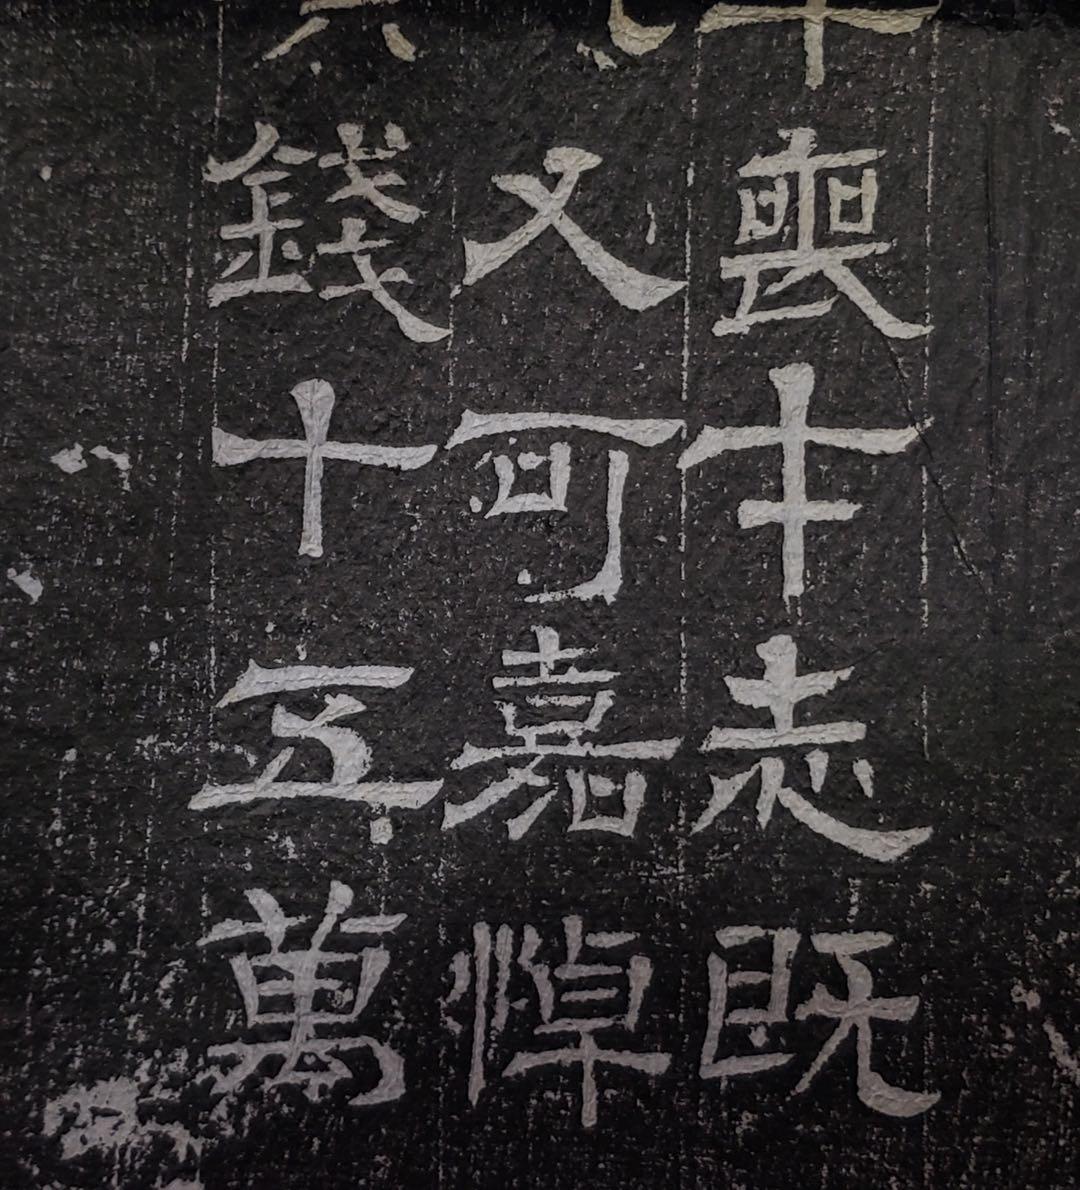 喪才志既
又可嘉悼
錢十五萬